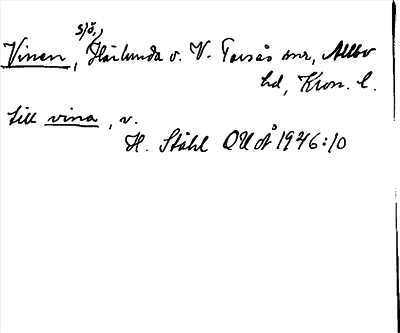 sjö,
Vinen, Härlunda o. V. Torsås snr, Allbo
hd, Kron. l.
till vina, v.
H. Ståhl OUÅ 1926:10